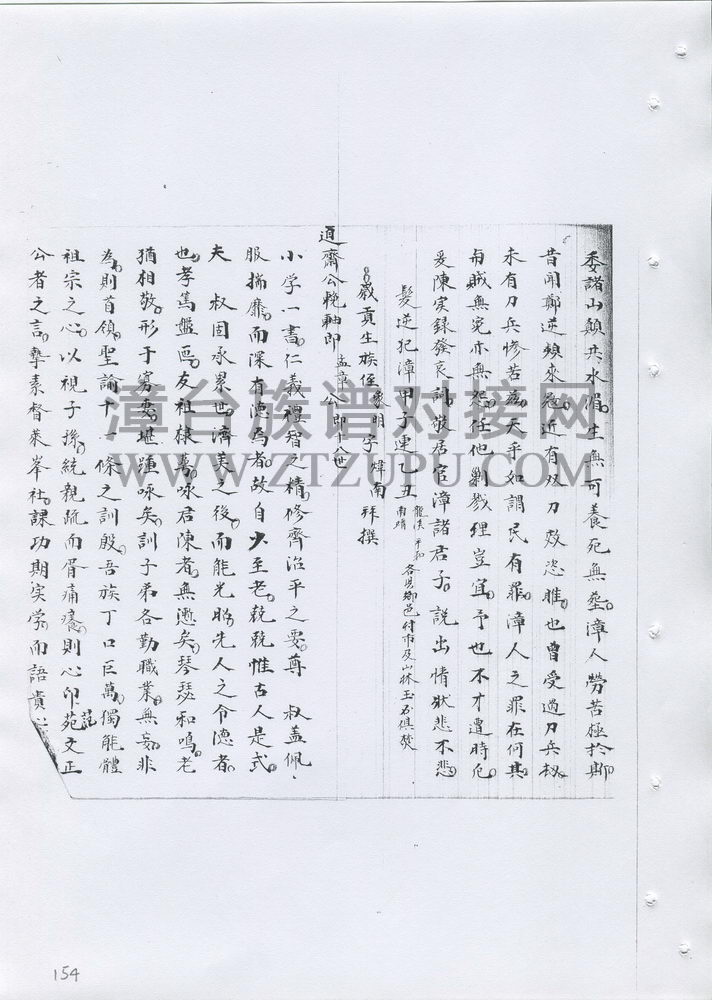 委諸山顛共水湄生無可養死無塟漳人勞苦極於斯
昔聞鄭逆頻來冦近有双刀效恣睢也曾受過刀兵刼
未有刀兵慘苦為天乎如謂民有罪漳人之罪在何其
南賊無冤亦無怨任他剿戮理豈宜予也不才遭時危
爰陳实錄發哀詞敬居宦漳諸君子說出情狀悲不悲
髮逆犯漳甲子連乙丑龍溪平和南靖各見鄉邑村市及山林玉石俱焚
歲貢生族侄象明字煒南拜撰
道齋公輓軸即孟章公即十八世
小学一書仁義禮智之精修齊治平之要尊 叔盖佩
服揣靡而深有漁為者故自少至老兢兢惟古人是式
夫 叔固承累世濟美之後而能光昭先人之令德者
也孝篤盤匜友祖棣萼咏君陳者無慙矣琴瑟和鳴老
猶相敬形于寡妻堪踵咏矣訓子弟各勤職業無妄非
為則首領聖諭十一條之訓殷吾族丁口巨萬獨能體
祖宗之心以視子孫統親疏而胥痛癢則心印范文正
公者之言摰素督萊峯社課功期实学而語貴
漳台族谱对接网
WWW.ZTZUPU.COM
154